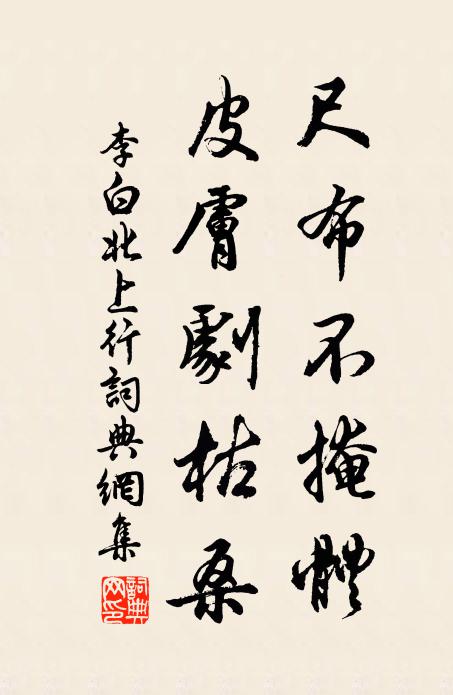 尺布不掩體
皮膚劇枯桑
李白北上行詞典網集
詞典网印